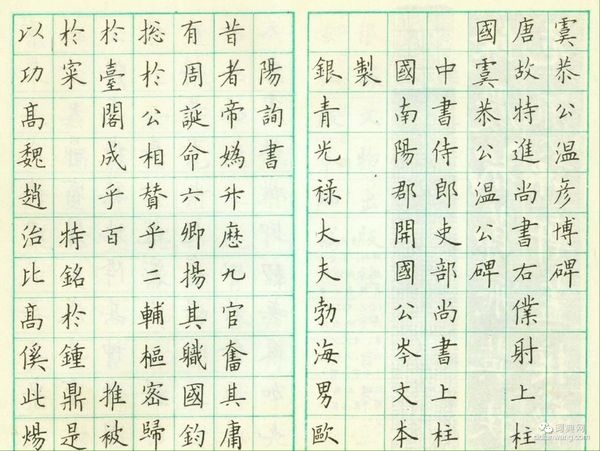 虞恭公温彦博碑
唐故特進尚書右僕射上柱
國虞恭公温公碑
中書侍郎吏部尚書上柱
國南陽郡開國公岑文本
製
銀青光祿大夫勃海男歐
陽詢書
昔者帝媯升歷九官奮其庸
有周誕命六卿揚其職國鈞
捴於公相贊乎二輔樞密歸
於臺閣成乎百 推被
於寀 特銘於鍾鼎是
以功髙魏趙治比髙傒此煬
词典网
cidianwang.com